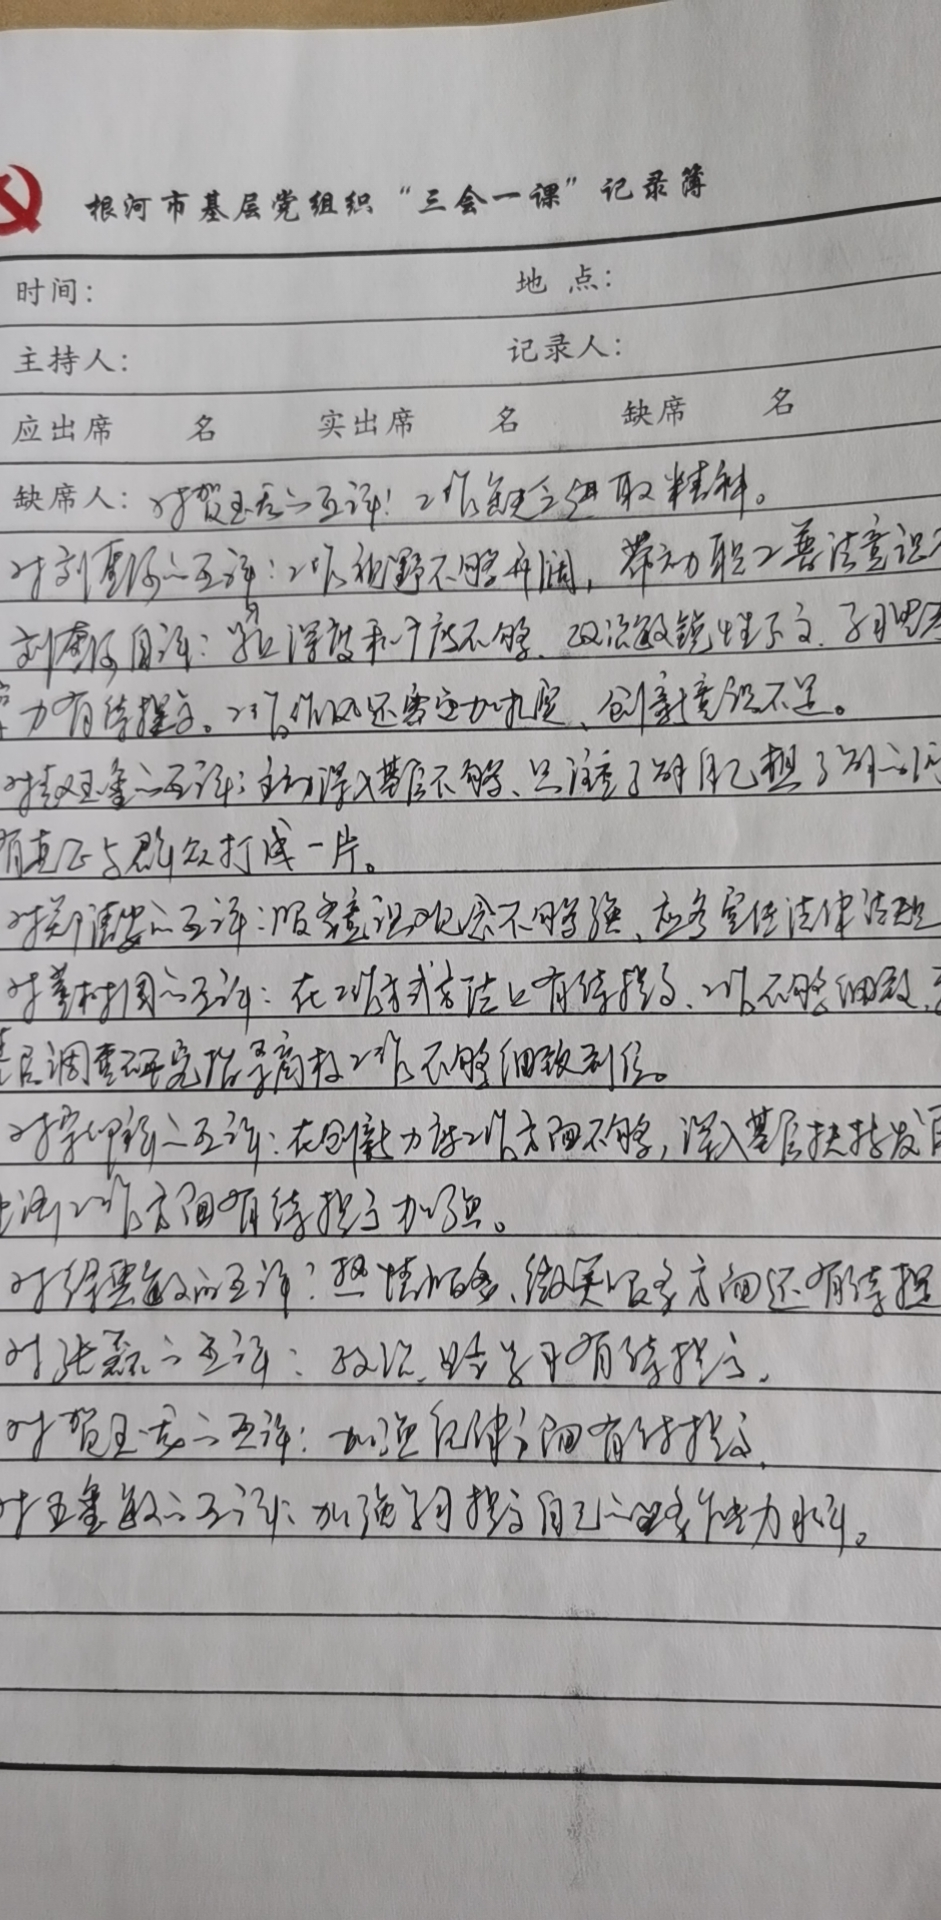 根河市基层党组织“三会一课”记录簿
时间： 地 点：
主持人： 记录人：
应出席 名 实出席 名 缺席 名
缺席人：对贺玉 的互评：工作缺乏进取精神。
对刘 的互评：工作视野不够开阔，带动职工普法意识不
刘 自评：学习深度和广度不够、政治敏锐性不高、
力有待提高。工作作风还需更加扎实、创新意识不足。
对 玉 的互评：主动深入基层不够、只注重了解自己想了解的
有真正与群众打成一片。
对 的互评：服务意识观念不够强、应多宣传法律法规
对 树国的互评：在工作方式方法上有待提高、工作不够细致、
基层调查研究指导 工作不够细致到位。
对 的互评：在创新力度工作方面不够，深入基层扶持发
工作方面有待提高加强。
对 敏的互评：热情服务、微笑服务方面还有待提
对张磊的互评：政治、 学习有待提高，
对贺玉 的互评：加强纪律方面有待提高，
对 敏的互评：加强学习提高自己的业务能力水平。